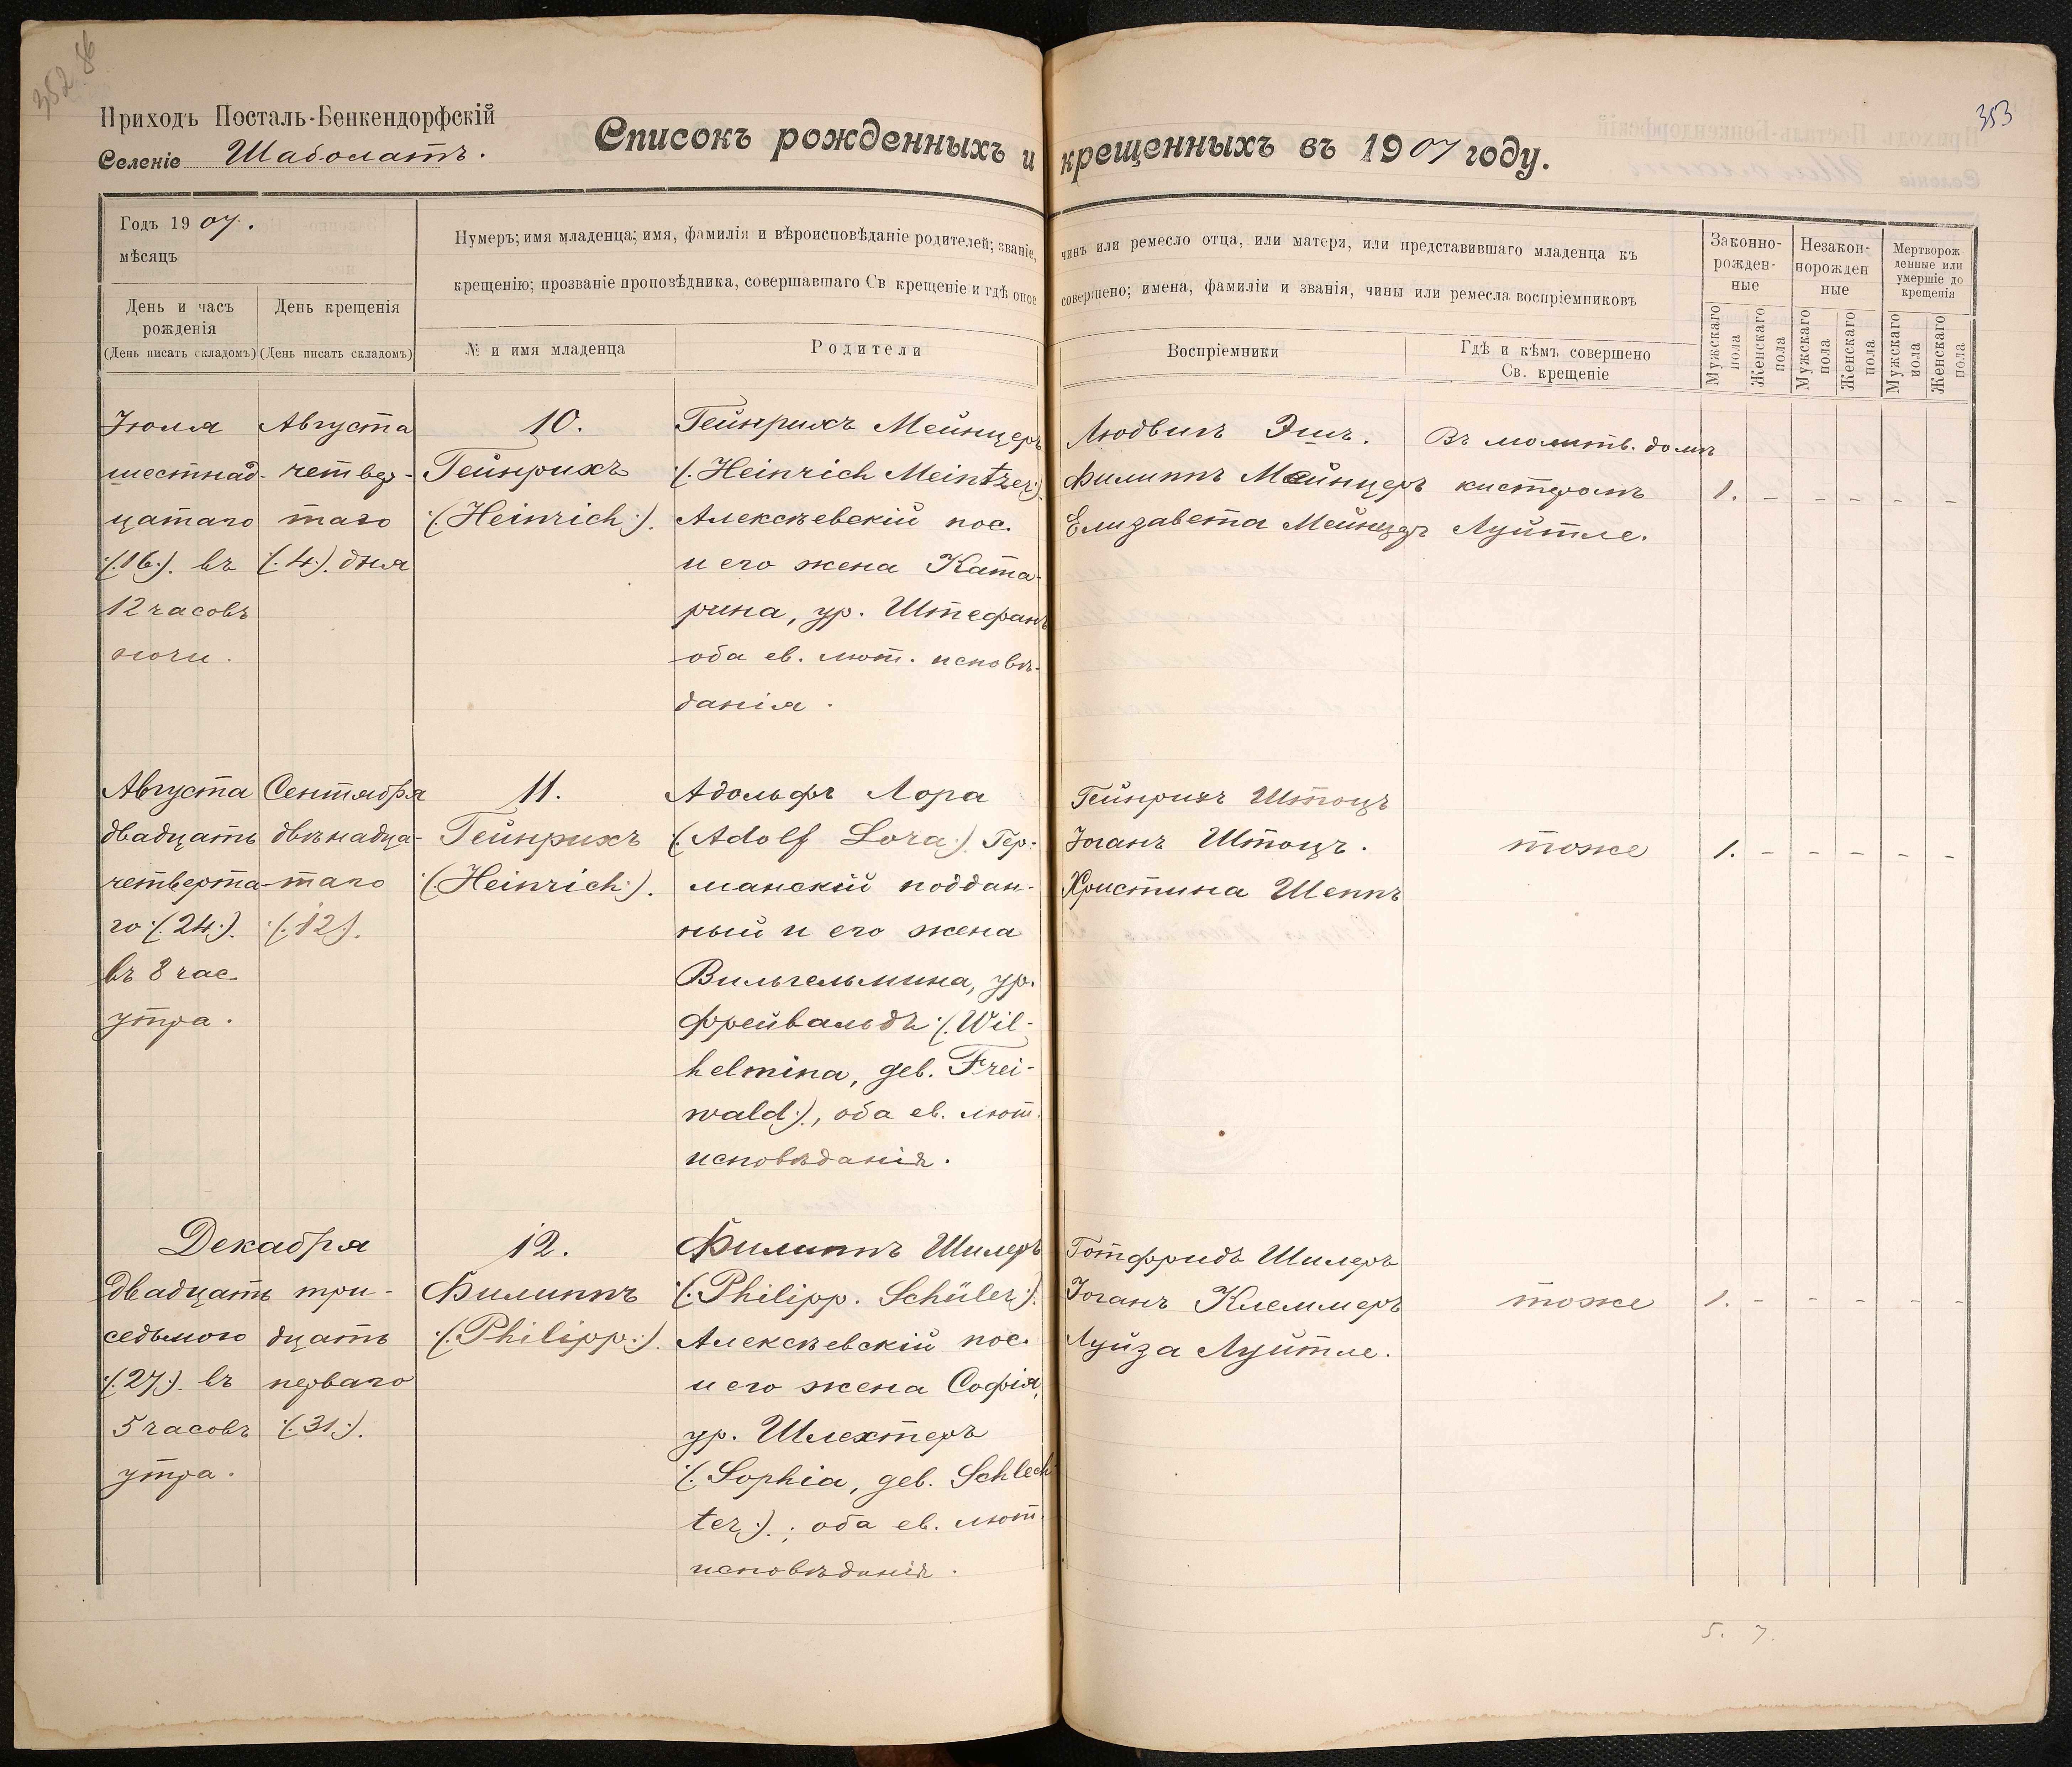 352 86
Приходъ Посталь-Бенкендорфскій
Селеніе Шаболатъ.
Списокъ рожденныхъ и крещенныхъ въ 1907 году.
353
Годъ 1907.
мѣсяцъ
День и часъ рожденія
(День писать складомъ)
День крещенія
(День писать складомъ)
Нумеръ; имя младенца; имя, фамилія и вѣроисповѣданіе родителей; званіе, чинъ или ремесло отца, или матери, или представившаго младенца къ
крещенію; прозваніе проповѣдника, совершавшаго Св крещеніе и гдѣ оное совершено; имена, фамиліи и званія, чины или ремесла воспріемниковъ
№ и имя младенца
Родители
Воспріемники
Гдѣ и кѣмъ совершено
Св. крещеніе
Законно-
рожден-
ные
Незакон-
норожден
ные
Мертворож-
денные или
умершіе до
крещенія
Мужскаго пола
Женскаго пола
Мужскаго пола
Женскаго пола
Мужскаго пола
Женскаго пола
Іюля
шестнад-
цатаго
(:16:). въ
12 часовъ
ночи.
Августа
четвер-
таго
(:4:). дня
10.
Гейнрихъ
(:Heinrich:).
Гейнрихъ Мейнцеръ
(:Heinrich Meintzer:)
Алексѣевскій пос.
и его жена Ката-
рина, ур. Штефанъ
оба ев. лют. исповѣ-
данія.
Людвигъ Эшъ.
Филиппъ Мейнцеръ
Елизавета Мейнцеръ
Въ молитв. домѣ
кистеромъ
Луйтле.
1. - - - - -
Августа
двадцать
четверта-
го (:24:).
въ 8 час.
утра.
Сентября
двѣнадца-
таго
(:12:).
11.
Гейнрихъ
(:Heinrich:).
Адольфъ Лора
(:Adolf Lora:) Гер-
манскій поддан-
ный и его жена
Вильгельмина, ур.
Фрейвальдъ (:Wil-
helmina, geb. Frei-
wald:), оба ев. лют.
исповѣданія.
Гейнрихъ Штоцъ
Іоганъ Штоцъ.
Христина Шеппъ
тоже
1. - - - - -
Декабря
двадцать
седьмого
(:27:). въ
5 часовъ
утра.
три-
дцать
перваго
(:31:).
12.
Филиппъ
(:Philipp:).
Филиппъ Шилеръ
(:Philipp. Schüler:).
Алексѣевскій пос.
и его жена Софія,
ур. Шлехтеръ
(:Sophia, geb. Schlech
ter:).; оба ев. лют.
исповѣданія.
Готфридъ Шилеръ
Іоганъ Клеммеръ
Луйза Луйтле.
тоже
1. - - - - -
5. 7.